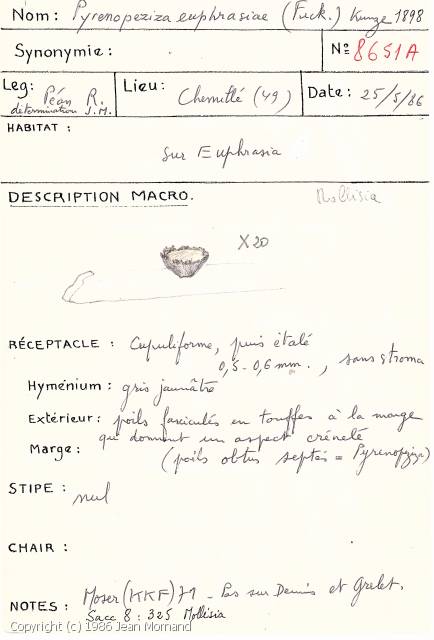 Nom: Pyrenopeziza euphrasiae (Fuck.) Kunze 1898
Synonymie:
No 8651A
Leg: Péan R.
détermination J.M.
Lieu: Chemillé (49)
Date: 25/5/86
HABITAT :
sur Euphrasia
DESCRIPTION MACRO.
Mollisia
X20
RÉCEPTACLE : Cupuliforme, puis étalé
0,5-0,6 mm. , sans stroma
Hyménium : gris jaunâtre
Extérieur: poils fasciculés en touffes à la marge
qui donnent un aspect crénelé
Marge: (poils obtus septés = Pyrenopeziza)
STIPE : nul
CHAIR :
NOTES : Moser (KKF) 71 - Pas sur Dennis et Grelet.
Sacc 8 : 325 Mollisia
Copyright (c) 1986 Jean Mornand